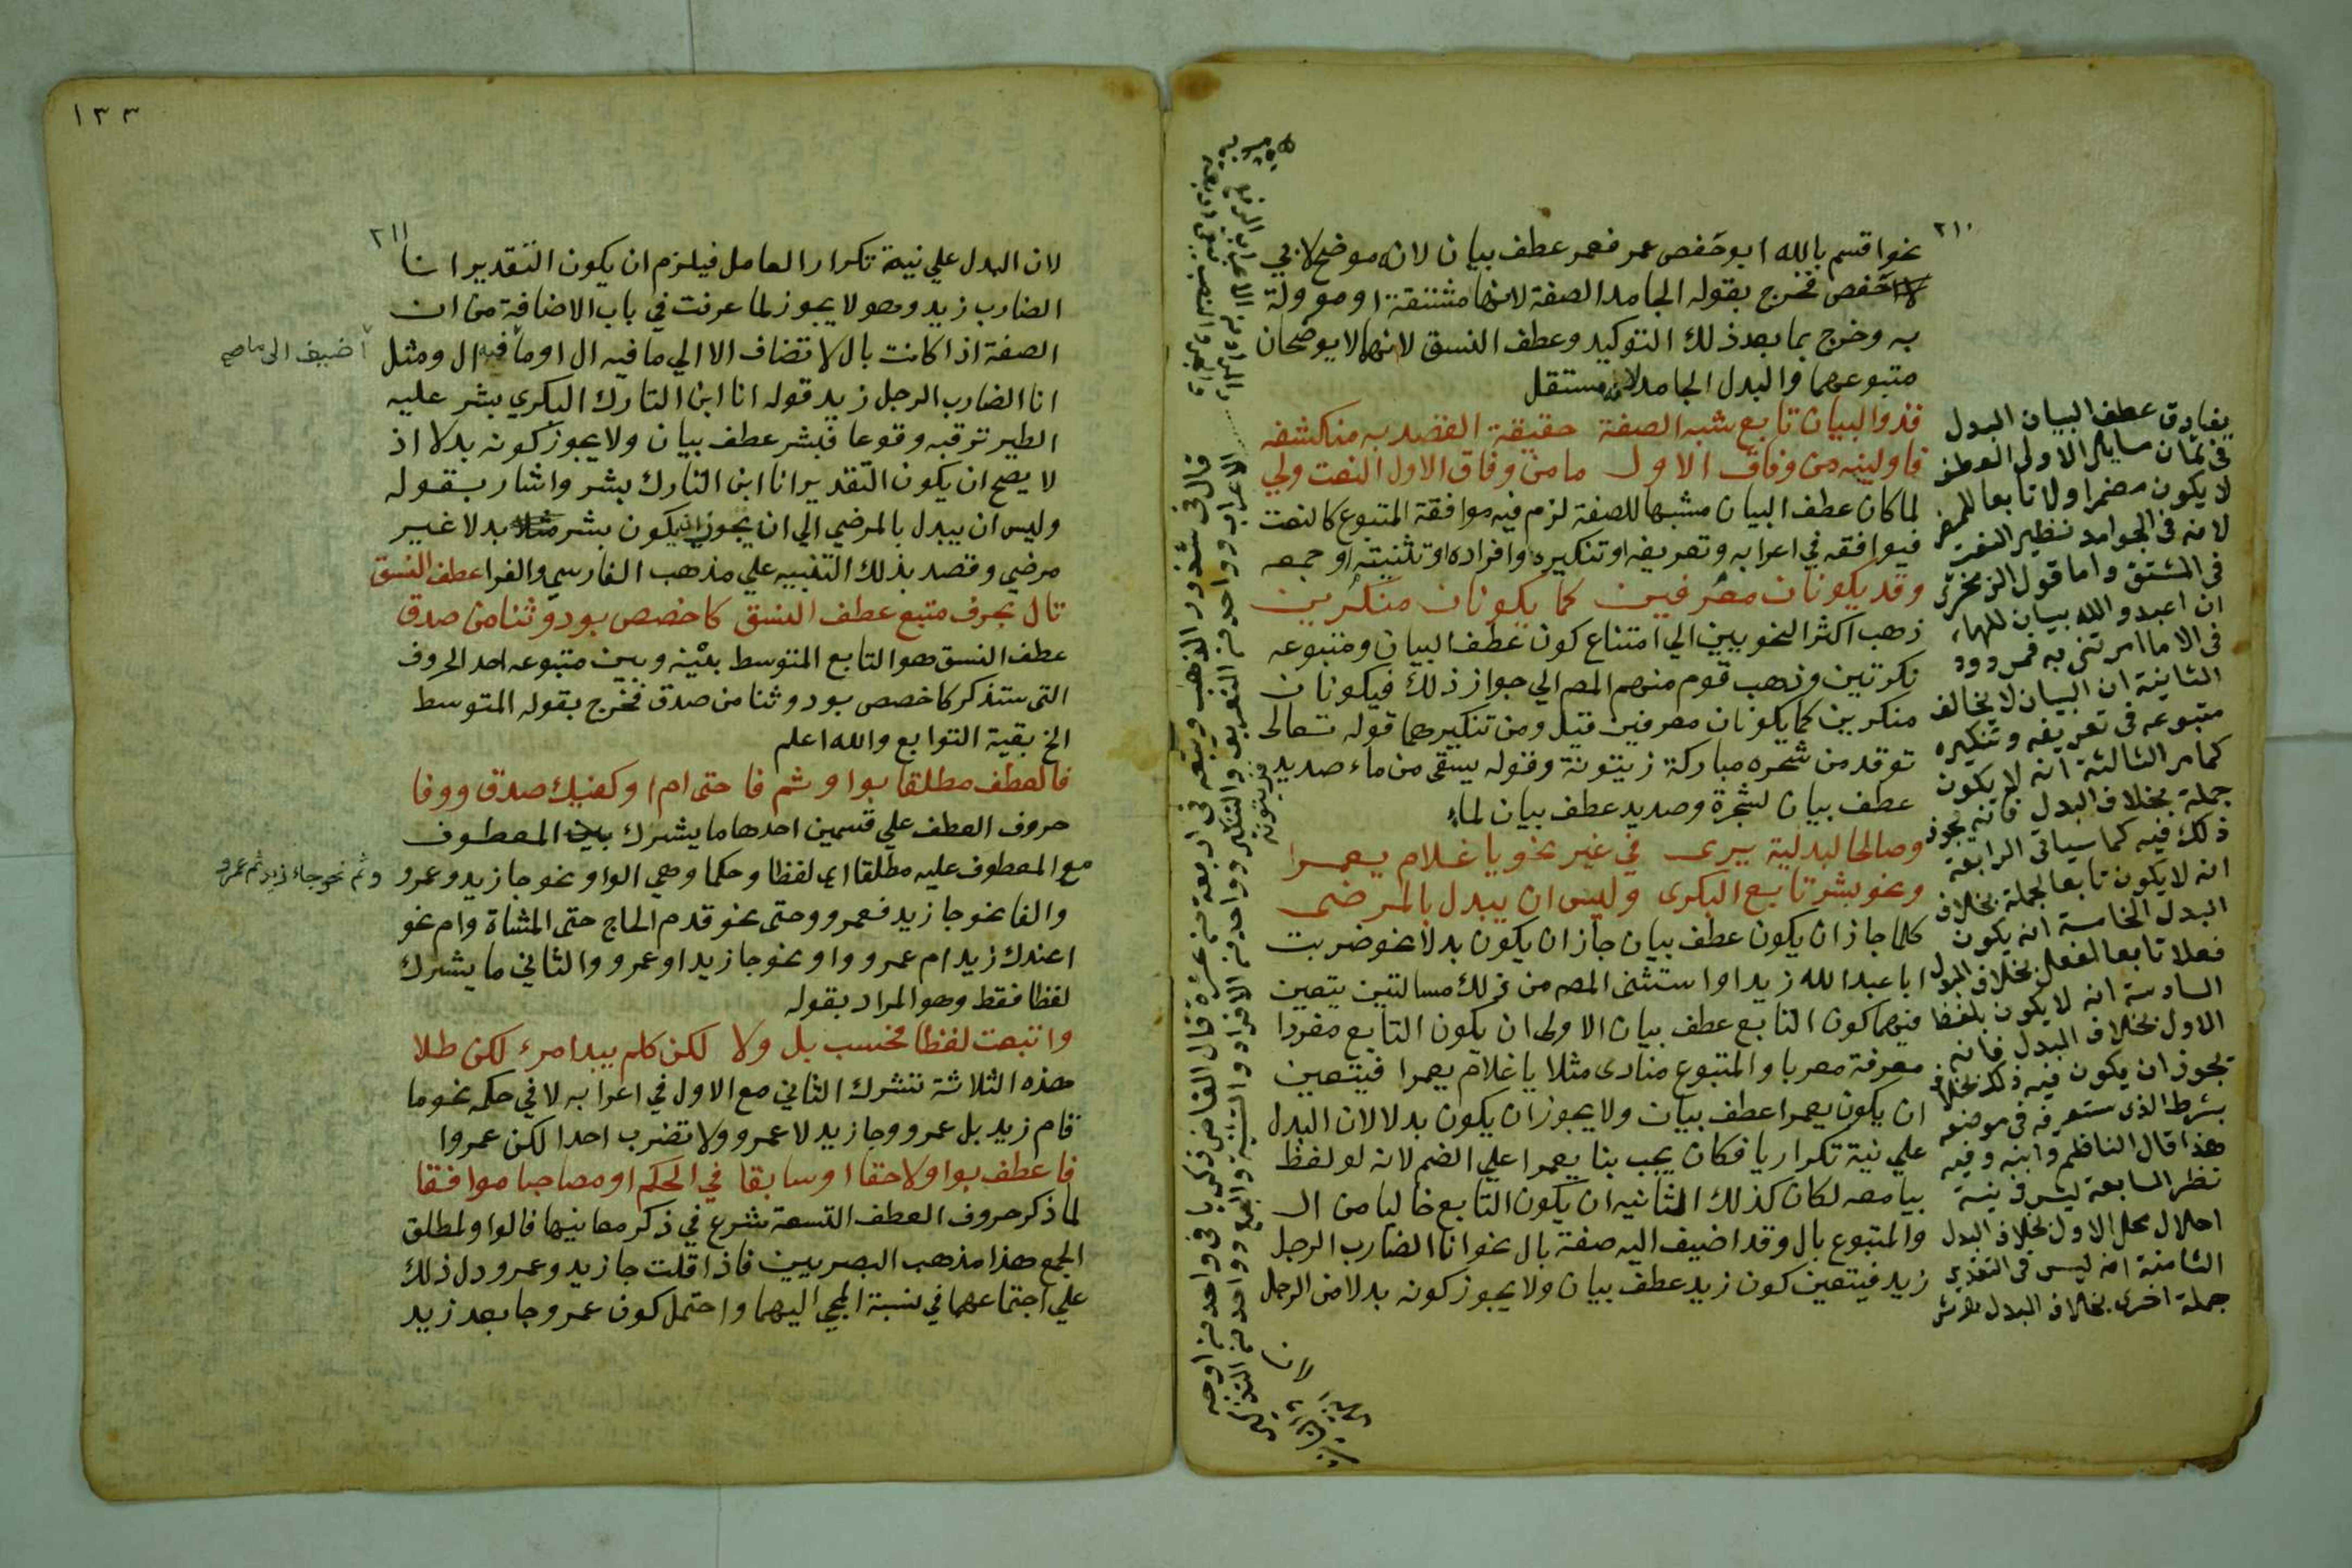 ٢١٠
نحو اقسم بالله ابو حفص عمر فعمر عطف بيان لانه موضح لابي
حفص فخرج بقوله الجامد الصفة لانها مشتقة او موولة
به وخرج بما بعد ذلك التوكيد وعطف النسق لانهما لا يوضحان
متبوعهما والبدل الجامد لانه مستقل
فذو البيان تابع شبه الصفة حقيقة القصد به منكشفه
فاولينه من وفاق الاول ما من وفاق الاول النعت ولي
لما كان عطف البيان مشبها للصفة لزم فيه موافقة المتبوع كالنعت
فيوافقه في اعرابه وتعريفه او تنكيره وافراده او تثنيته او جمعه
وقد يكونان معرفين كما يكونان منكرين
ذهب اكثر النحويين الي امتناع كون عطف البيان ومتبوعه
نكرتين وذهب قوم منهم المص الي جواز ذلك فيكونان
منكرين كما يكونان معرفين قيل ومن تنكيرهما قوله تعالى
توقد من شجره مباركة زيتونة وقوله يسقى من ماء صديد فزيتونة
عطف بيان لشجرة وصديد عطف بيان لماء
وصالحا لبدلية يرى في غير نحو يا غلام يعمرا
ونحو بشر تابع البكرى وليس ان يبدل بالمرضى
كلما جاز ان يكون عطف بيان جاز ان يكون بدلا نحو ضربت
ابا عبد الله زيدا واستثنى المص من ذلك مسالتين يتعين
فيهما كون التابع عطف بيان الاولى ان يكون التابع مفردا
معرفة معربا والمتبوع منادى مثلا يا غلام يعمرا فيتعين
ان يكون يعمرا عطف بيان ولا يجوز ان يكون بدلا لان البدل
علي نية تكرار يا فكان يجب بنا يعمرا علي الضم لانه لو لفظ
بيا معه لكان كذلك الثانيه ان يكون التابع خاليا من ال
والمتبوع بال وقد اضيف اليه صفة بال نحو انا الضارب الرجل
زيد فيتعين كون زيد عطف بيان ولا يجوز كونه بدلا من الرجل
لان
يفارق عطف البيان البدل
في ثمان مسايل الاولى العطف
لا يكون مضمرا ولا تابعا للمضمر
لانه في الجوامد نظير النعت
في المشتق واما قول الزمخشري
ان اعبدوا الله بيان للهاء
في الا ما امرتني به فمردود
الثانية ان البيان لا يخالف
متبوعه في تعريفه وتنكيره
كما مر الثالثة انه لا يكون
جملة بخلاف البدل فانه يجوز
ذلك فيه كما سياتى الرابعة
انه لا يكون تابعا لجملة بخلاف
البدل الخامسة انه لا يكون
فعلا تابعا لفعل بخلاف البدل
السادسة انه لا يكون بلفظ
الاول بخلاف البدل فانه
يجوز ان يكون فيه ذلك
بشرط الذى ستعرفه في موضعه
هذا قال الناظم وابنه وفيه
نظر السابعة ليس في نية
احلال محل الاول بخلاف البدل
الثامنة انه ليس في التقدير
جملة اخرى بخلاف البدل
١٣٣
٢١١
لان البدل علي نية تكرار العامل فيلزم ان يكون التقدير انا
الضارب زيد وهو لا يجوز لما عرفت في باب الاضافة من ان
الصفة اذا كانت بال لا تضاف الا الي ما فيه ال او ما فيه ال ومثل
أضيف الى ما صح
انا الضارب الرجل زيد قوله انا ابن التارك البكري بشر عليه
الطير ترقبه وقوعا فبشر عطف بيان ولا يجوز كونه بدلا اذ
لا يصح ان يكون التقدير انا ابن التارك بشر واشار بقوله
وليس ان يبدل بالمرضي الي ان يجوز ان يكون بشر مثلا بدلا غير
مرضي وقصد بذلك التنبيه علي مذهب الفارسي والفرا عطف النسق
تال بحرف متبع عطف النسق كاخصص بود وثنا من صدق
عطف النسق هو التابع المتوسط بينه وبين متبوعه احد الحروف
التى ستذكر كاخصص بود وثنا من صدق فخرج بقوله المتوسط
الخ بقية التوابع والله اعلم
فالعطف مطلقا بواو ثم فا حتى ام او كفيك صدق ووفا
حروف العطف علي قسمين احدها ما يشرك بين المعطوف
مع المعطوف عليه مطلقا اى لفظا وحكما وهي الواو نحو جا زيد وعمرو
وثم نحو جاء زيد ثم عمرو
والفا نحو جا زيد فعمرو وحتى نحو قدم الحاج حتى المشاة وام نحو
اعندك زيد ام عمرو واو نحو جا زيد او عمرو والثاني ما يشرك
لفظا فقط وهو المراد بقوله
واتبعت لفظا فحسب بل ولا لكن كلم يبد امرء لكن طلا
هذه الثلاثة تشرك الثاني مع الاول في اعرابه لا في حكمه نحو ما
قام زيد بل عمرو وجا زيد لا عمرو ولا تضرب احدا لكن عمروا
فاعطف بواو لاحقا او سابقا في الحكم او مصاحبا موافقا
لما ذكر حروف العطف التسعة شرع في ذكر معانيها فالواو لمطلق
الجمع هذا مذهب البصريين فاذا قلت جا زيد وعمرو دل ذلك
علي اجتماعهما في نسبة المجي اليهما واحتمل كون عمرو جا بعد زيد